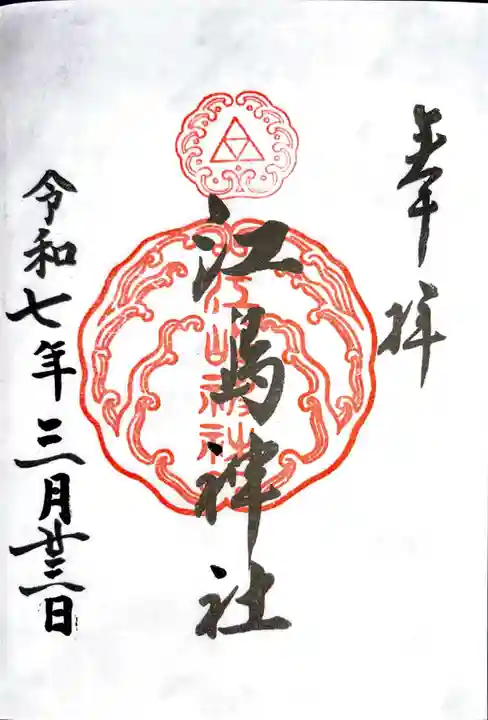 奉拝
江島神社
江島神社
令和七年三月廿三日